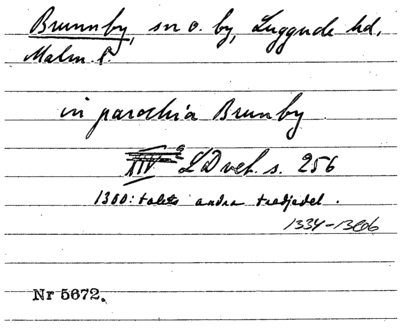 Brunnby, sn o. by, Luggude hd,
Malm. l.
in parochia Brunby
LD vet. s. 256
1300:talets andra tredjedel.
1334-1366
Nr 5672.